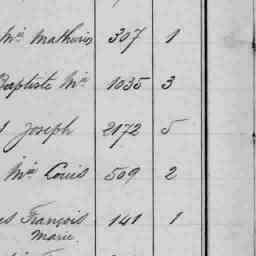 Mie Mathurin 307 1
Baptiste Mie 1035 3
Joseph 2172 5
Mie Louis 509 2
François 141 1
Marie.